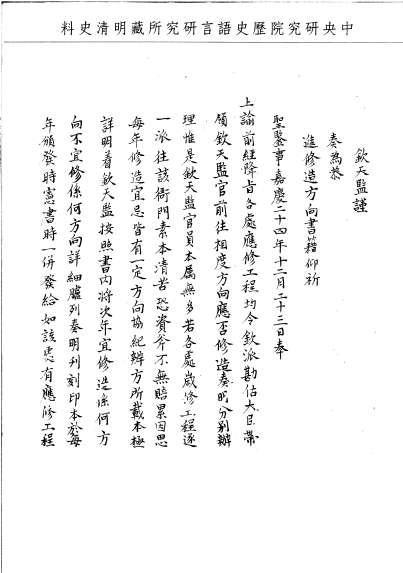 中央研究院歷史語言研究所藏明清史料
欽天監謹
奏為恭
進修造方向書籍仰祈
聖鑒事嘉慶二十四年十二月二十三日奉
上諭前經降旨各處應修工程均令欽派勘估大臣帶
領欽天監官前往相度方向應否修造奏明分別辦
理惟是欽天監官員本屬無多若各處歲修工程逐
一派往該衙門素本清苦恐資斧不無賠累因思
每年修造宜忌皆有一定方向協紀辨方所載本極
詳明着欽天監按照書內將次年宜修造係何方
向不宜修係何方向詳細臚列奏明刊刻印本於每
年頒發時憲書時一併發給如該處有應修工程